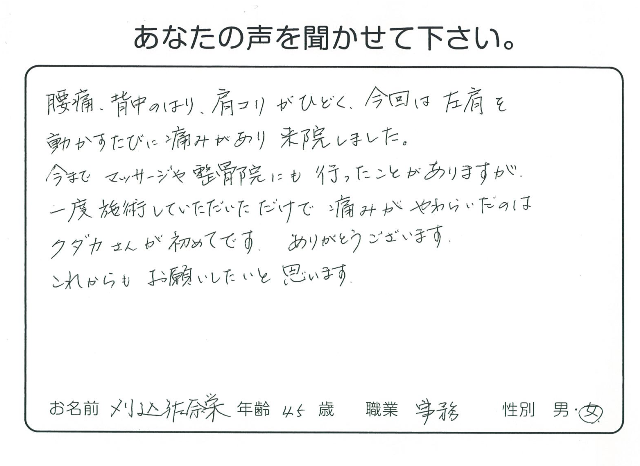 あなたの声を聞かせて下さい。
腰痛、背中のはり、肩コリがひどく、今回は左肩を
動かすたびに痛みがあり来院しました。
今までマッサージや整骨院にも行ったことがありますが、
一度施術していただいただけで痛みがやわらいだのは
クダカさんが初めてです。ありがとうございます。
これからもお願いしたいと思います。
お名前 刈込佐奈栄 年齢 45 歳 職業 事務 性別 男・女